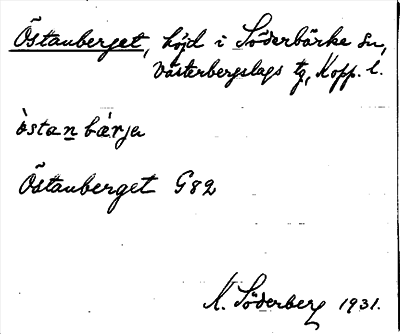 Östanberget, höjd i Söderbärke sn,
Västerbergslags tg, Kopp. l.
östanbärjə
Östanberget G82
K. Söderberg 1931.